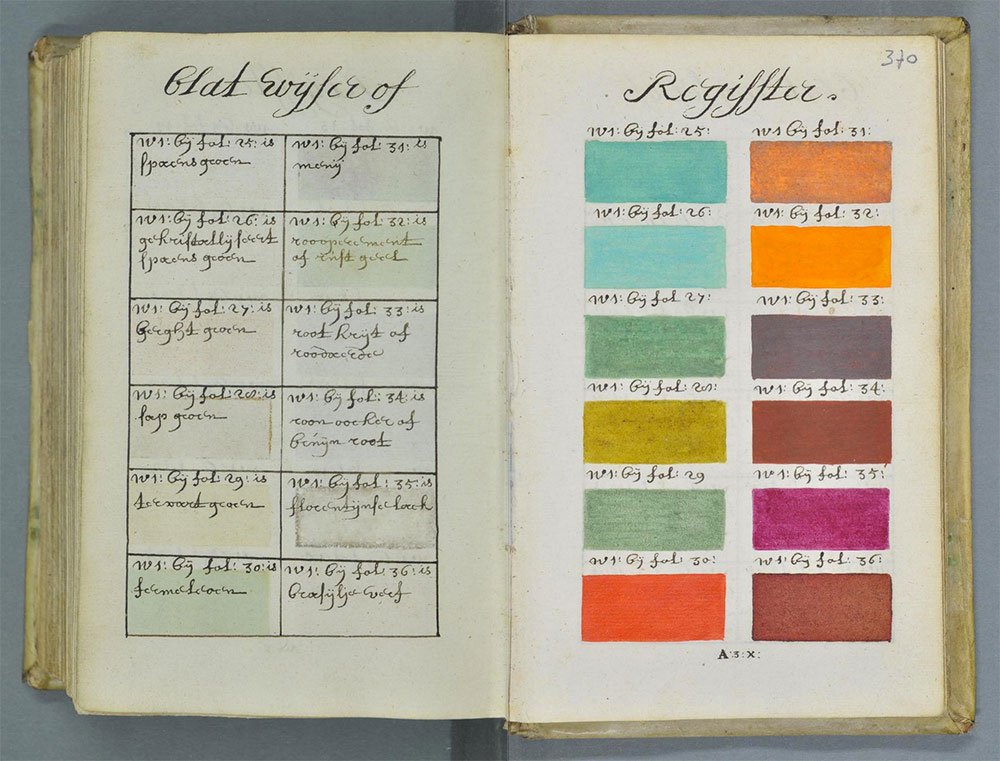 Blat Wijser of
w1: bij fol: 25: is
spaens groen
w1: bij fol: 31: is
menij
w1: bij fol: 26: is
gekristallijseert
spaens groen
w1: bij fol: 32: is
roooperement
of rust geel
w1: bij fol: 27: is
berght groen
w1: bij fol: 33: is
root krijt of
roodaerde
w1: bij fol: 28: is
sap groen
w1: bij fol: 34: is
roon oocker of
bruijn root
w1: bij fol: 29: is
groen
w1: bij fol: 35: is
florentijnse lack
w1: bij fol: 30: is
fermeloen
w1: bij fol: 36: is
brasijlje verf
370
Regisster.
w1: bij fol: 25:
w1: bij fol: 31:
w1: bij fol: 26:
w1: bij fol: 32:
w1: bij fol: 27:
w1: bij fol: 33:
w1: bij fol: 28:
w1: bij fol: 34:
w1: bij fol: 29
w1: bij fol: 35:
w1: bij fol: 30:
w1: bij fol: 36:
A:3:X: